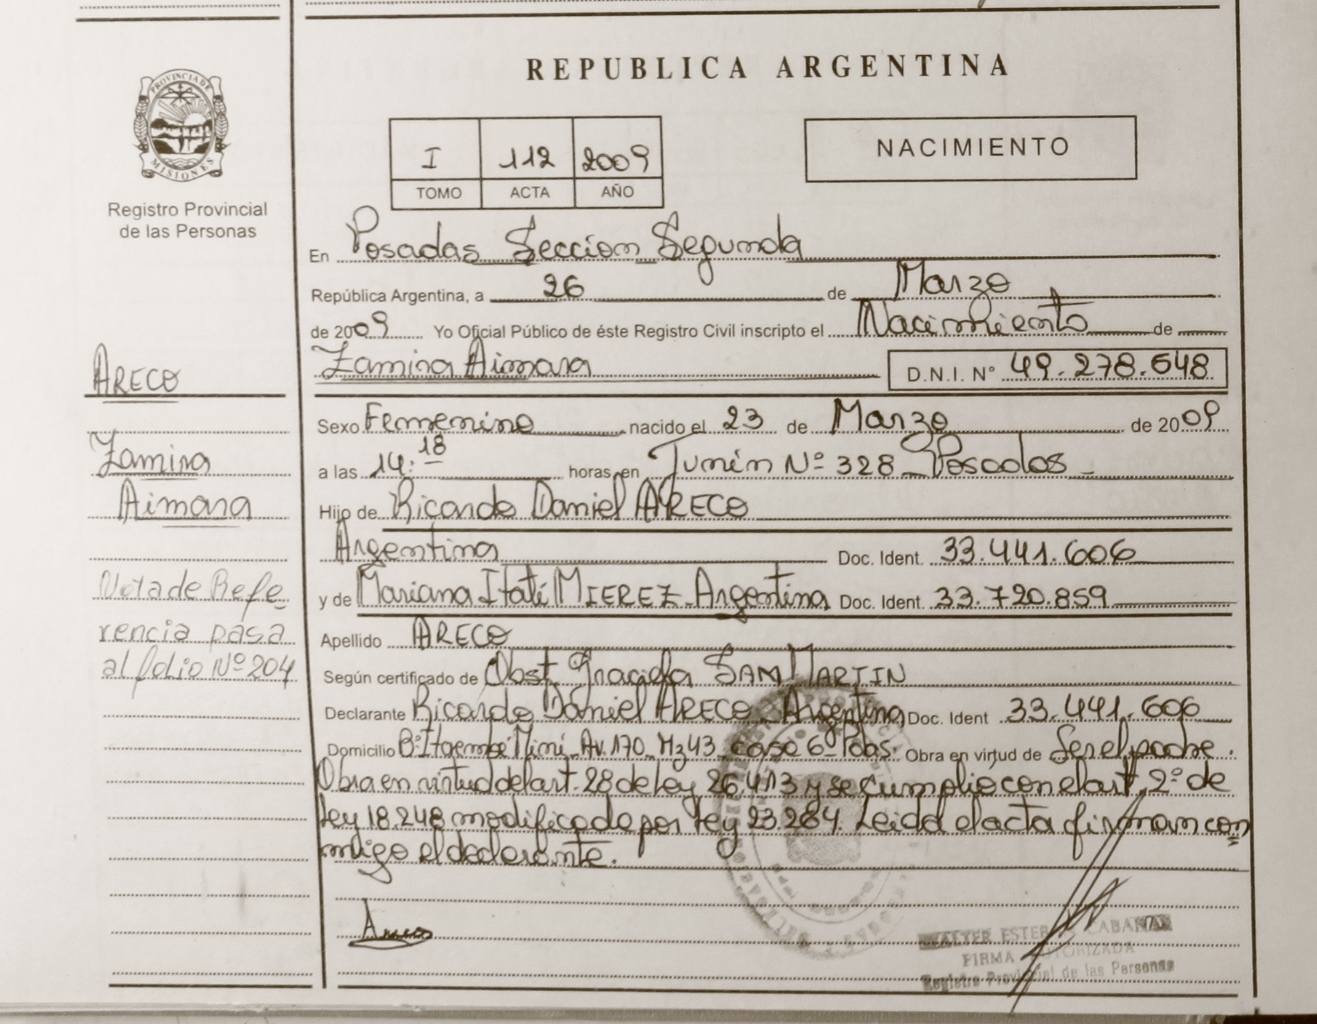 PROVINCIA DE
MISIONES
Registro Provincial
de las Personas
REPUBLICA ARGENTINA
I 112 2009
TOMO ACTA AÑO
NACIMIENTO
En Posadas Seccion Segunda
República Argentina, a 26 de Marzo
de 2009 Yo Oficial Público de éste Registro Civil inscripto el Nacimiento de
Zamira Aimara D.N.I. Nº 49.278.648
ARECO
Zamira
Aimara
Nota de Refe
rencia pasa
al folio Nº 204
Sexo Femenino nacido el 23 de Marzo de 2009
a las 14:18 horas, en Junín Nº 328 Posadas
Hijo de Ricardo Daniel ARECO
Argentina Doc. Ident. 33.441.606
y de Mariana Itatí MIEREZ Argentina Doc. Ident. 33.720.859
Apellido ARECO
Según certificado de Obst. Graciela SAN MARTIN
Declarante Ricardo Daniel ARECO Argentina Doc. Ident 33.441.606
Domicilio Bº Itaembe Mini Av. 170 Mz 43 casa 6 Pdas. Obra en virtud de Ser el padre.
Obra en virtud del art. 28 de ley 26.413 y se cumplio con el art. 2º de
ley 18.248 modificado por ley 23.264. Leida el acta firman con
migo el declarante.
Areco
FIRMA AUTORIZADA
Registro Provincial de las Personas